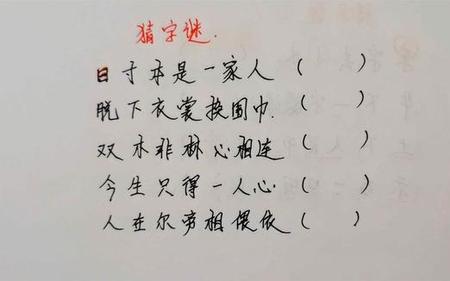 猜字谜.
日寸本是一家人（ ）
脱下衣裳换围巾.（ ）
双木非林心相连（ ）
今生只得一人心（ ）
人在尔旁相偎依（ ）